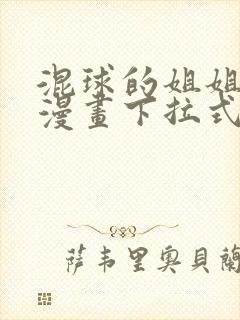 混球的姐姐
漫畫下拉式
萨韦里奥贝蘭